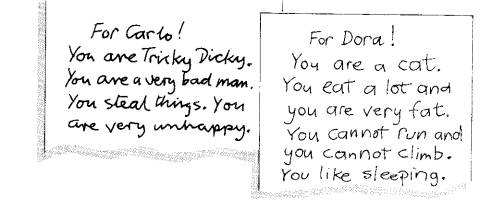 For Carlo!
You are Tricky Dicky.
You are a very bad man.
You steal things. You
are very unhappy.
For Dora!
You are a cat.
You eat a lot and
you are very fat.
You cannot run and
you cannot climb.
You like sleeping.